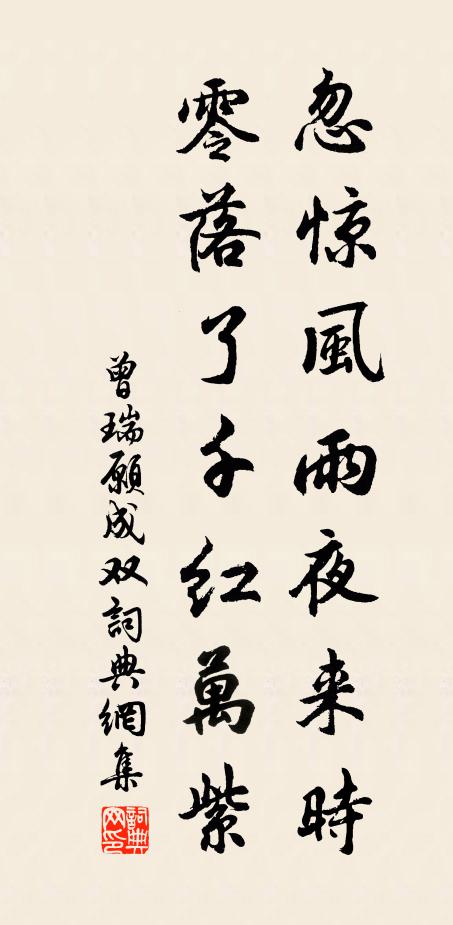 忽惊風雨夜来時
零落了千红萬紫
曾瑞願成双詞典網集
詞典网印